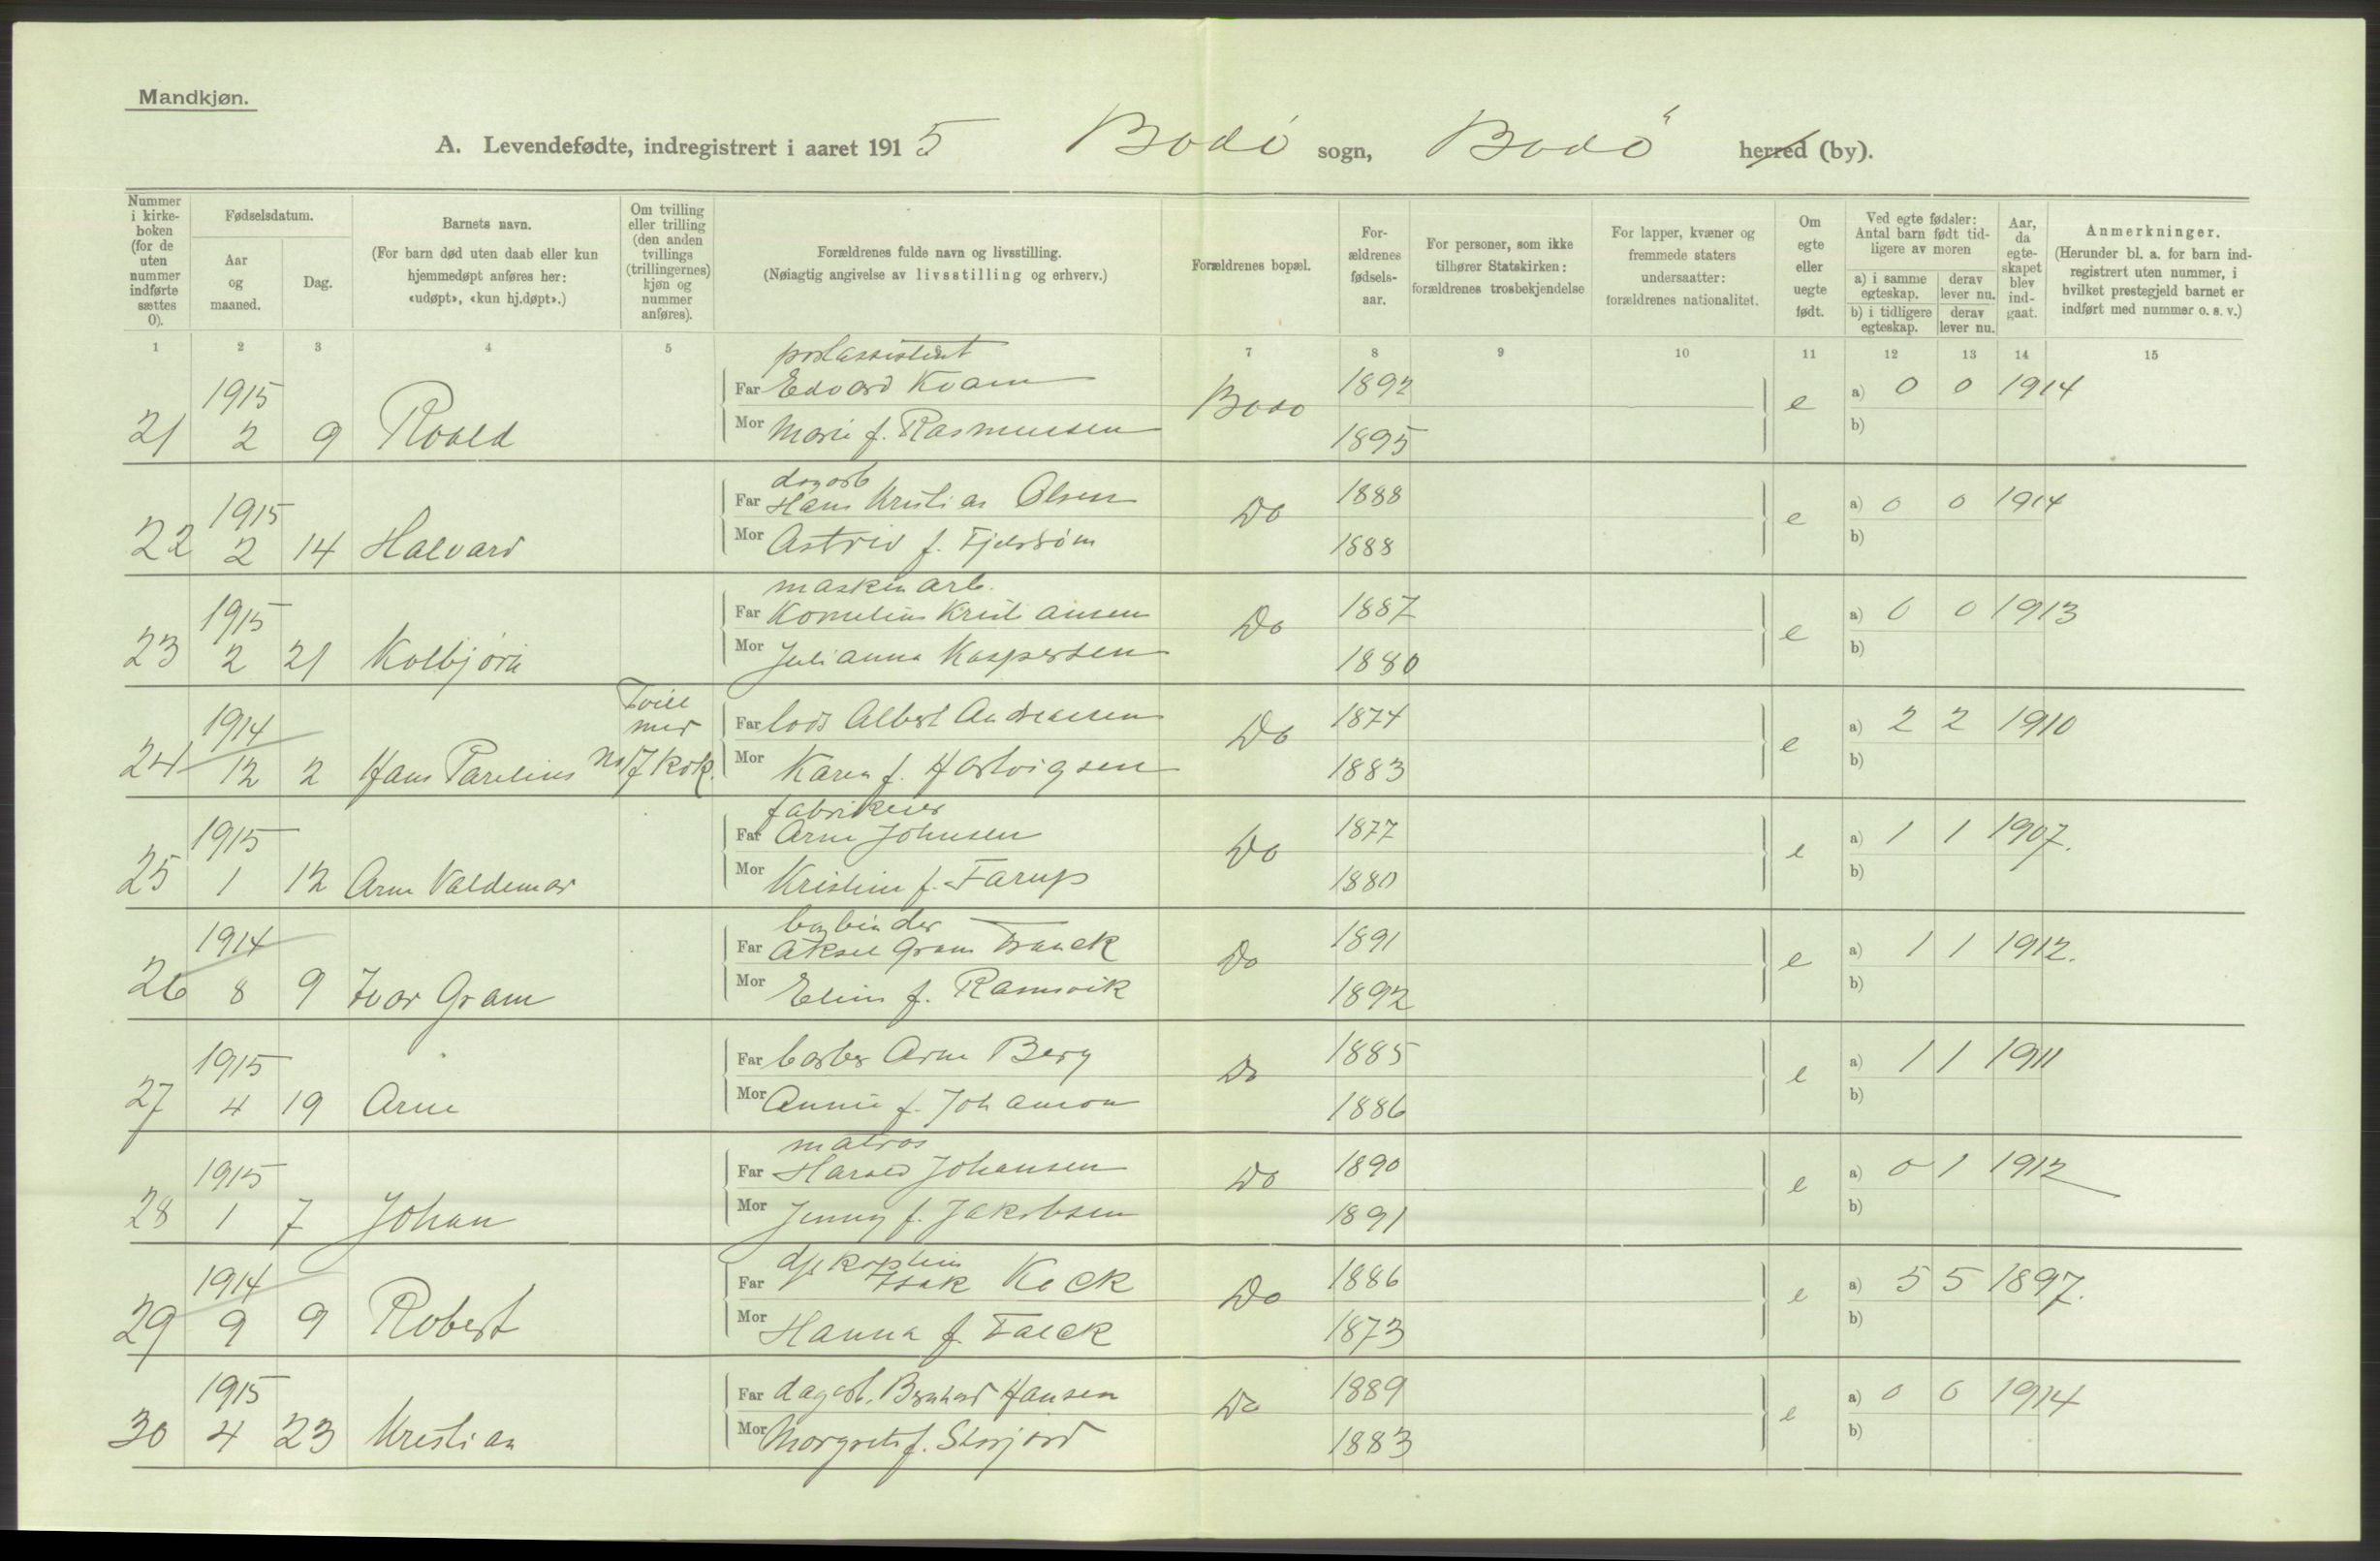 Mandkjøn.
A. Levendefødte, indregistrert i aaret 1915 Bodø sogn, Bodø herred (by).
Nummer i kirke-boken (for de uten nummer indførte sættes 0).
Fødselsdatum.
Aar og maaned.
Dag.
Barnets navn.
(For barn død uten daab eller kun hjemmedøpt anføres her: «udøpt», «kun hj.døpt».)
Om tvilling eller trilling (den anden tvillings (trillingernes) kjøn og nummer anføres).
Forældrenes fulde navn og livsstilling.
(Nøiagtig angivelse av livsstilling og erhverv.)
Forældrenes bopæl.
For-ældrenes fødsels-aar.
For personer, som ikke tilhører Statskirken: forældrenes trosbekjendelse
For lapper, kvæner og fremmede staters undersaatter: forældrenes nationalitet.
Om egte eller uegte født.
Ved egte fødsler: Antal barn født tid-ligere av moren
a) i samme egteskap. derav lever nu.
b) i tidligere egteskap. derav lever nu.
Aar, da egte-skapet blev ind-gaat.
Anmerkninger.
(Herunder bl. a. for barn ind-registrert uten nummer, i hvilket prestegjeld barnet er indført med nummer o. s. v.)
1 2 3 4 5 6 7 8 9 10 11 12 13 14 15
postassistent
1915 Far Edvard Kvam Bodø 1892 e a) 0 0 1914
21 2 9 Roald Mor Marie f. Rasmussen 1895 b)
dagarb
1915 Far Hans Kristian Olsen Do 1888 e a) 0 0 1914
22 2 14 Halvard Mor Astrid f. Fjelstrøm 1888 b)
maskinarb.
1915 Far Kornelius Kristiansen Do 1887 e a) 0 0 1913
23 2 21 Kolbjørn Mor Julianna Kaspersen 1880 b)
Tvill
1914 med Far lods Albert Andreassen Do 1874 e a) 2 2 1910
24 12 2 Hans Parelius No 7 kvk. Mor Karen f. Hartvigsen 1883 b)
fabrikeier
1915 Far Arne Johnsen Do 1877 e a) 1 1 1907.
25 1 12 Arne Valdemar Mor Kristine f. Farup 1880 b)
bogbinder
1914 Far Aksel Gram Franck Do 1891 e a) 1 1 1912.
26 8 9 Ivar Gram Mor Elins f. Ramsvik 1892 b)
1915 Far barber Arne Berg Do 1885 e a) 1 1 1911
27 4 19 Arne Mor Annie f. Johanson 1886 b)
matros
1915 Far Harald Johansen Do 1890 e a) 0 1 1912
28 1 7 Johan Mor Jenny f. Jakobsen 1891 b)
kaptein
1914 Far Isak Keck Do 1886 e a) 5 5 1897.
29 9 9 Robert Mor Hanna f. Falck 1873 b)
1915 Far dagarb. Bernhard Hansen Do 1889 e a) 0 0 1914
30 4 23 Kristian Mor Margrete f. Storjord 1883 b)